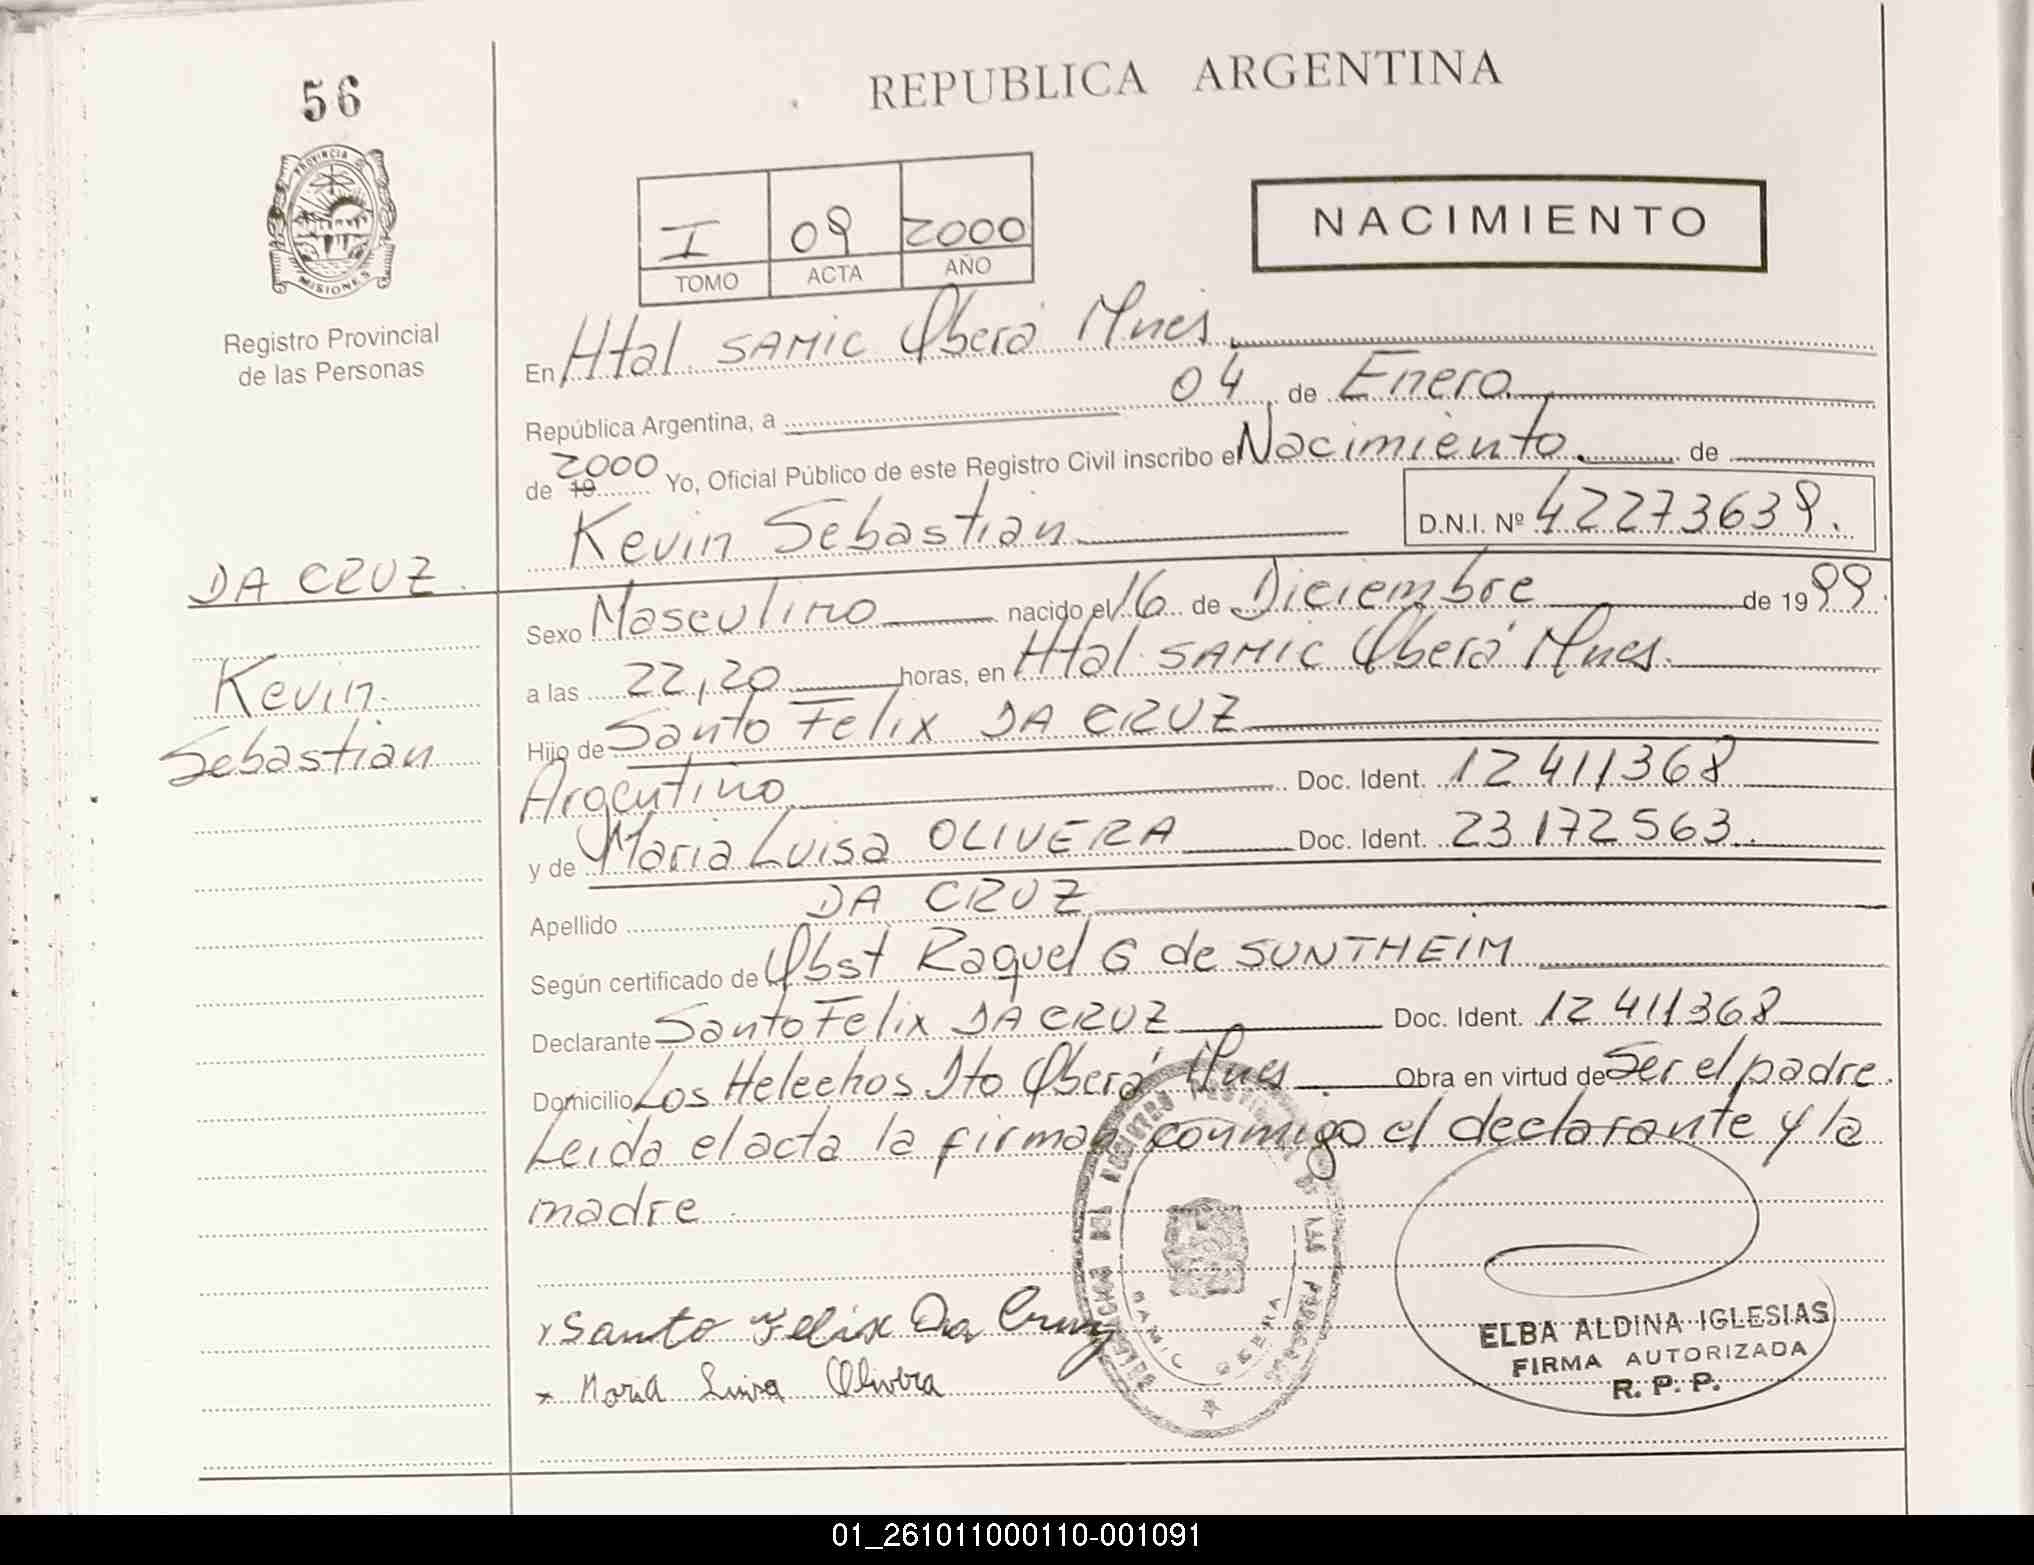 56
REPUBLICA ARGENTINA
PROVINCIA DE
MISIONES
Registro Provincial
de las Personas
I 09 2000
TOMO ACTA AÑO
NACIMIENTO
En Htal. SAMIC Oberá Mnes
República Argentina, a 04 de Enero
de 19 2000 Yo, Oficial Público de este Registro Civil inscribo el Nacimiento. de
Kevin Sebastian D.N.I. Nº 42273639.
DA CRUZ
Kevin
Sebastian
Sexo Masculino nacido el 16 de Diciembre de 1999.
a las 22,20 horas, en Htal. SAMIC Oberá Mnes.
Hijo de Santo Felix DA CRUZ
Argentino Doc. Ident. 12 411368
y de Maria Luisa OLIVERA Doc. Ident. 23.172563.
Apellido DA CRUZ
Según certificado de Obst Raquel G de SUNTHEIM
Declarante Santo Felix DA CRUZ Doc. Ident. 12 411368
Domicilio Los Helechos Dto Oberá Mnes Obra en virtud de Ser el padre.
Leida el acta la firman conmigo el declarante y la
madre
Santo Felix Da Cruz
Maria Luisa Olivera
SAMIC OBERA
ELBA ALDINA IGLESIAS
FIRMA AUTORIZADA
R. P. P.
01_261011000110-001091